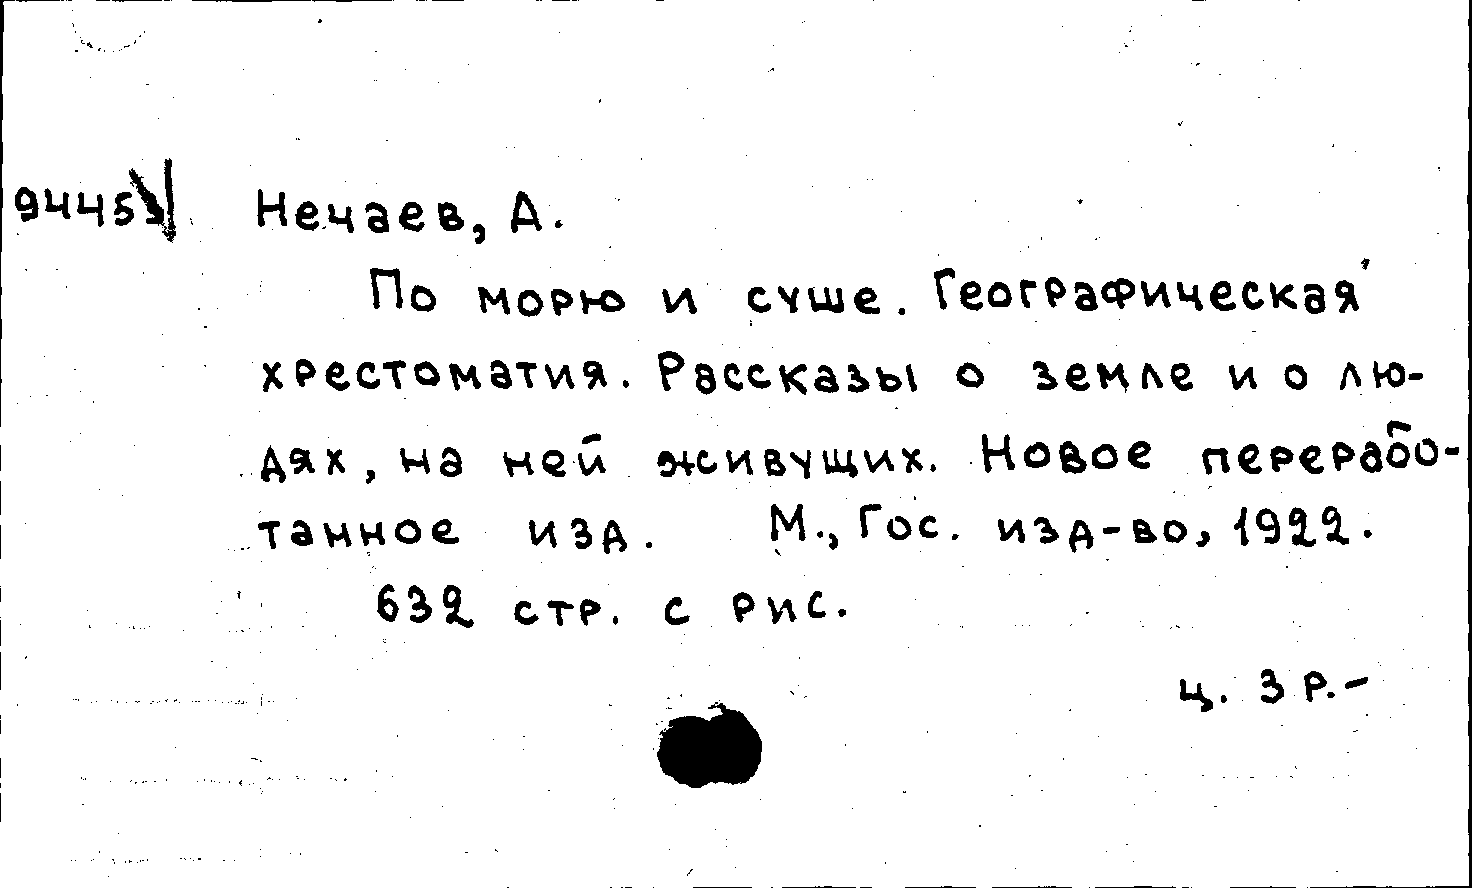 Нечаев, А.
По морю и суше. Географическая
хрестоматия. Рассказы о земле и о лю-
дях, на ней живущих. Новое перерабо-
танное изд. М., Гос. изд-во, 1922.
632 стр. с рис.
ц. 3 р.-